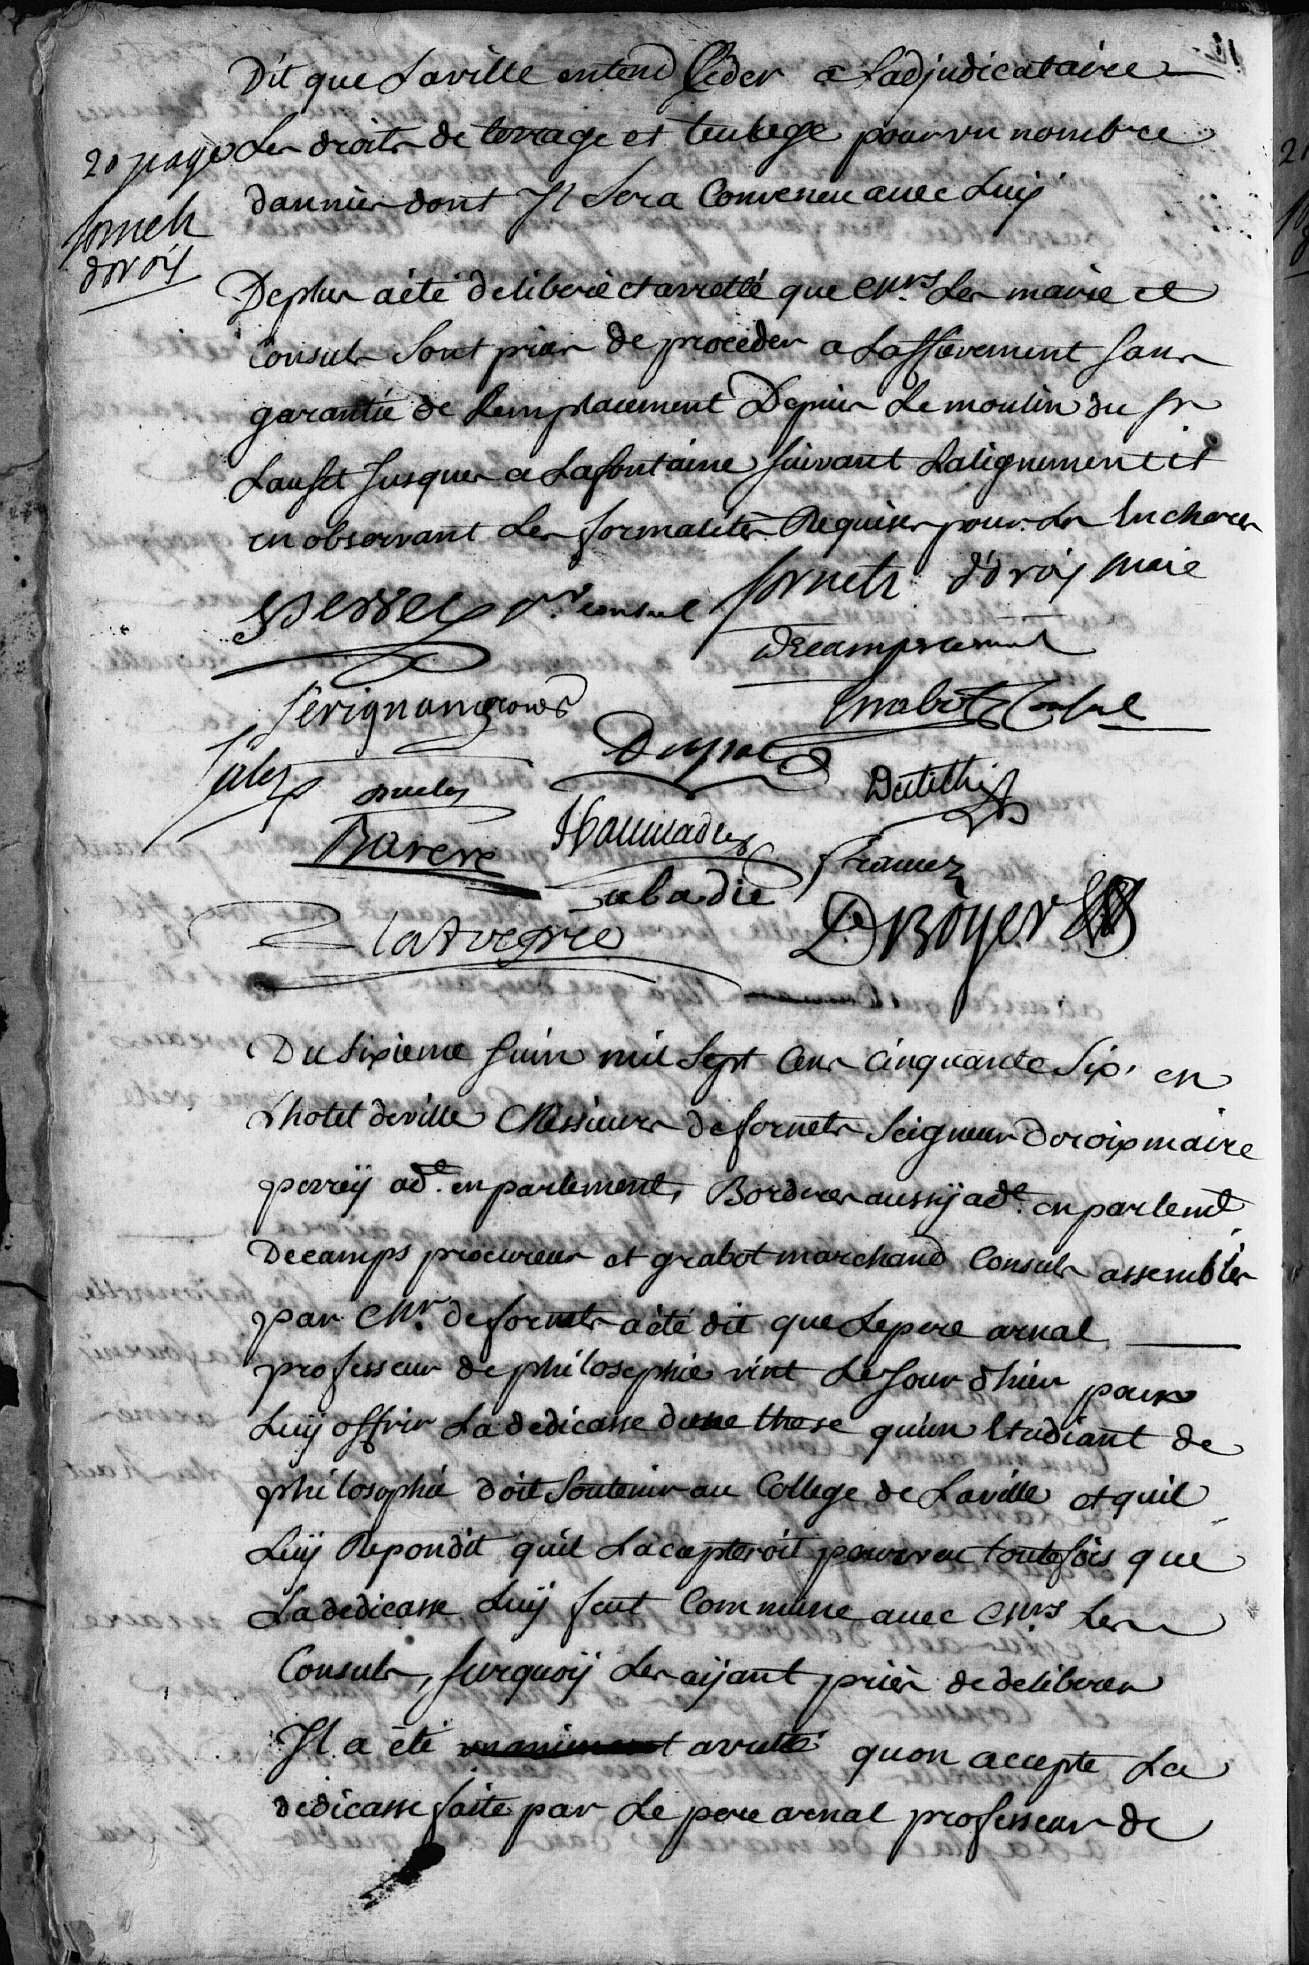 Dit que Laville entend Ceder a Ladjudicataire
20 page Les droits de terrage et pour un nombre
dannées dont Jl Sera Convenu avec Luij
fornets
doroix
Deplus aété deliberé et arretté que Mrs Les maire et
Consuls Sont priés de proceder a Laffievement sans
garantie de Lemplacement Depuis Le moulin du sr
Jusques a Lafontaine suivant Lalignement et
en observant Les formalités Requises pour Les Encheres
perrey pr consul fornets d'oroix maire
Decamps consul
serignan grabot Consul
Barere
abadie
DeBoyer
Du Sixieme Juin mil Sept Cens Cinquante Six, en
Lhotel deville Messieurs defornets Seigneur Doroix maire
perreij adt. en parlement, Borderes aussij adt. en parlemt
Decamps procureur et grabot marchand Consuls assemblés
par Mr. defornets aété dit que Lepere arnal
professeur de philosophie vint Le Jour dhier pour
Luij offrir La dedicasse dune these quun Etudiant de
philosophie doit Soutenir au College de Laville et quil
Luij Repondit quil Lacapteroit pourveu toutefois que
La dedicasse Luij feut Commune avec Mrs Les
Consuls, surquoij Les aijant priés de deliberer
Jl a été unanimement arretté quon accepte La
dedicasse faite par Le pere arnal professeur de